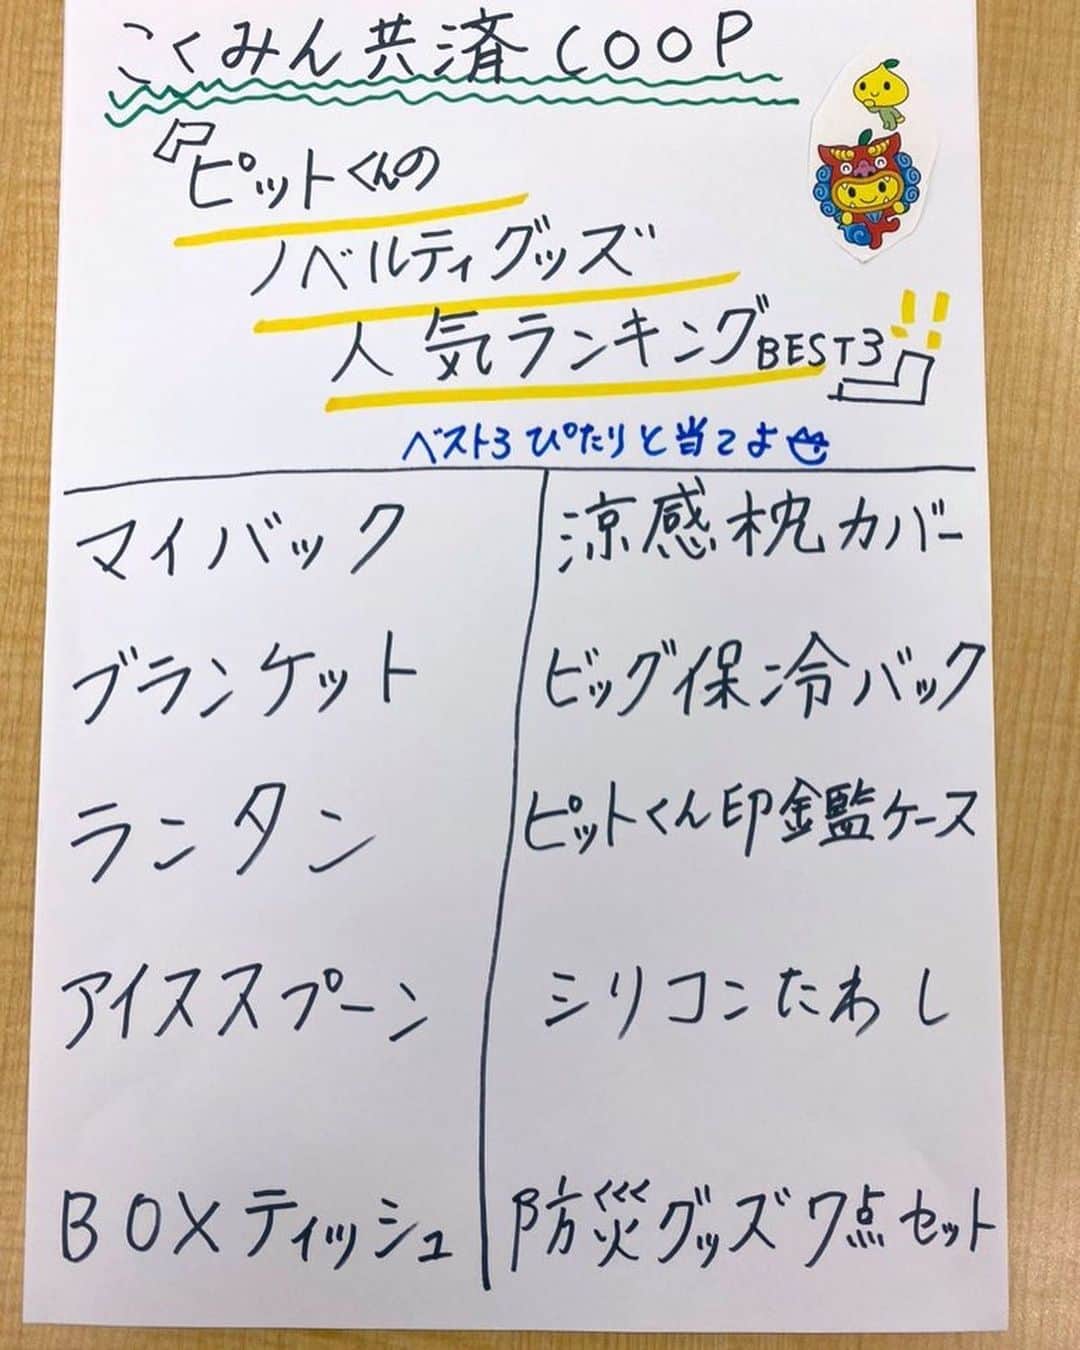 こくみん共済COOP
『ピットくんの
ノベルティグッズ
人気ランキングBEST3!!』
ベスト3ぴたりと当てよ
マイバック
ブランケット
ランタン
アイススプーン
BOXティッシュ
涼感枕カバー
ビッグ保冷バック
ピットくん印金監ケース
シリコンたわし
防災グッズ7点セット